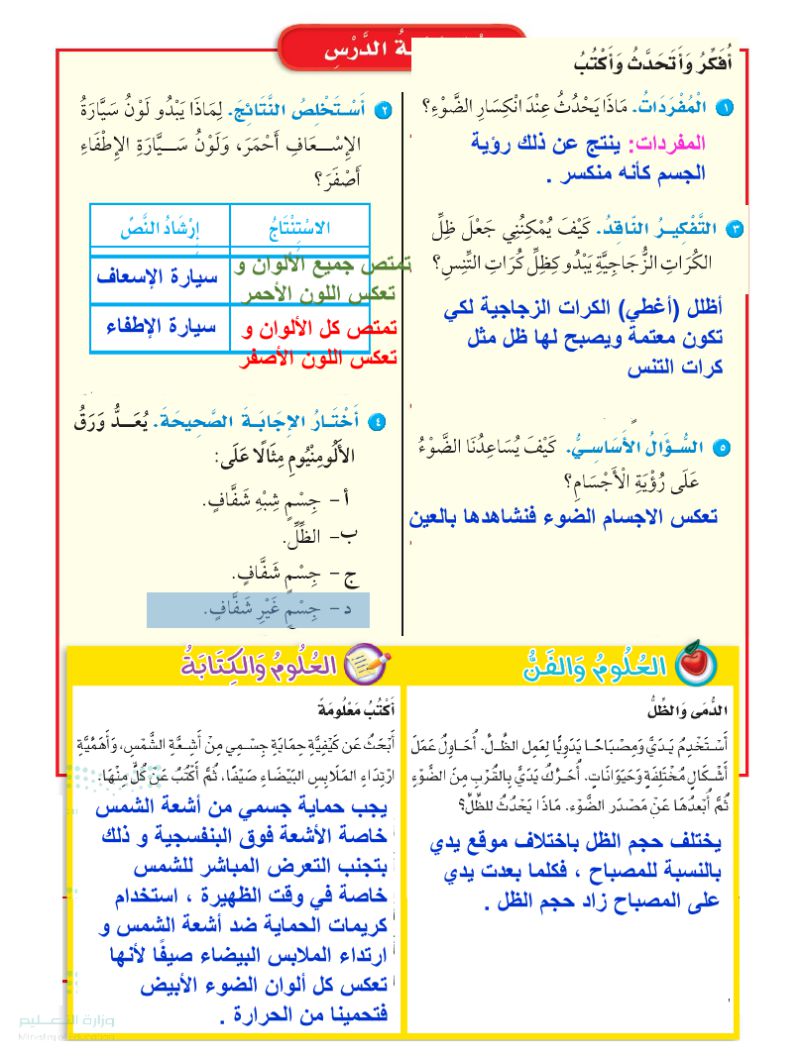 الدَّرْسِ
أُفَكِّرُ وَأَتَحَدَّثُ وَأَكْتُبُ
١ الْمُفْرَدَاتُ. مَاذَا يَحْدُثُ عِنْدَ انْكِسَارِ الضَّوْءِ؟
المفردات: ينتج عن ذلك رؤية
الجسم كأنه منكسر .
٣ التَّفْكِيرُ النَّاقِدُ. كَيْفَ يُمْكِنُنِي جَعْلَ ظِلِّ
الكُرَاتِ الزُّجَاجِيَّةِ يَبْدُو كَظِلِّ كُرَاتِ التِّنِسِ؟
أظلل (أغطي) الكرات الزجاجية لكي
تكون معتمة ويصبح لها ظل مثل
كرات التنس
٥ السُّؤَالُ الأَسَاسِيُّ. كَيْفَ يُسَاعِدُنَا الضَّوْءُ
عَلَى رُؤْيَةِ الْأَجْسَامِ؟
تعكس الاجسام الضوء فنشاهدها بالعين
٢ أَسْتَخْلِصُ النَّتَائِجَ. لِمَاذَا يَبْدُو لَوْنُ سَيَّارَةِ
الإِسْعَافِ أَحْمَرَ، وَلَوْنُ سَيَّارَةِ الإِطْفَاءِ
أَصْفَرَ؟
الاسْتِنْتَاجُ إِرْشَادُ النَّصِّ
تمتص جميع الألوان و سيارة الإسعاف
تعكس اللون الأحمر
تمتص كل الألوان و سيارة الإطفاء
تعكس اللون الأصفر
٤ أَخْتَارُ الإِجَابَةَ الصَّحِيحَةَ. يُعَدُّ وَرَقُ
الأَلُومِنْيُومِ مِثَالًا عَلَى:
أ- جِسْمٍ شِبْهِ شَفَّافٍ.
ب- الظِّلِّ.
ج- جِسْمٍ شَفَّافٍ.
د- جِسْمٍ غَيْرِ شَفَّافٍ.
العُلُومُ وَالفَنُّ
الدُّمَى وَالظِّلُّ
أَسْتَخْدِمُ يَدَيَّ وَمِصْبَاحًا يَدَوِيًّا لِعَمَلِ الظِّلِّ. أُحَاوِلُ عَمَلَ
أَشْكَالٍ مُخْتَلِفَةٍ وَحَيَوَانَاتٍ. أُحَرِّكُ يَدَيَّ بِالقُرْبِ مِنَ الضَّوْءِ
ثُمَّ أُبْعِدُهَا عَنْ مَصْدَرِ الضَّوْءِ. مَاذَا يَحْدُثُ للظِّلِّ؟
يختلف حجم الظل باختلاف موقع يدي
بالنسبة للمصباح ، فكلما بعدت يدي
على المصباح زاد حجم الظل .
العُلُومُ وَالكِتَابَةُ
أَكْتُبُ مَعْلُومَةً
أَبْحَثُ عَنْ كَيْفِيَّةِ حِمَايَةِ جِسْمِي مِنْ أَشِعَّةِ الشَّمْسِ، وَأَهَمِّيَّةِ
ارْتِدَاءِ المَلَابِسِ البَيْضَاءِ صَيْفًا، ثُمَّ أَكْتُبُ عَنْ كُلٍّ مِنْهَا.
يجب حماية جسمي من أشعة الشمس
خاصة الأشعة فوق البنفسجية و ذلك
بتجنب التعرض المباشر للشمس
خاصة في وقت الظهيرة ، استخدام
كريمات الحماية ضد أشعة الشمس و
ارتداء الملابس البيضاء صيفًا لأنها
تعكس كل ألوان الضوء الأبيض
فتحمينا من الحرارة .
وزارة التعليم
Ministry of Education